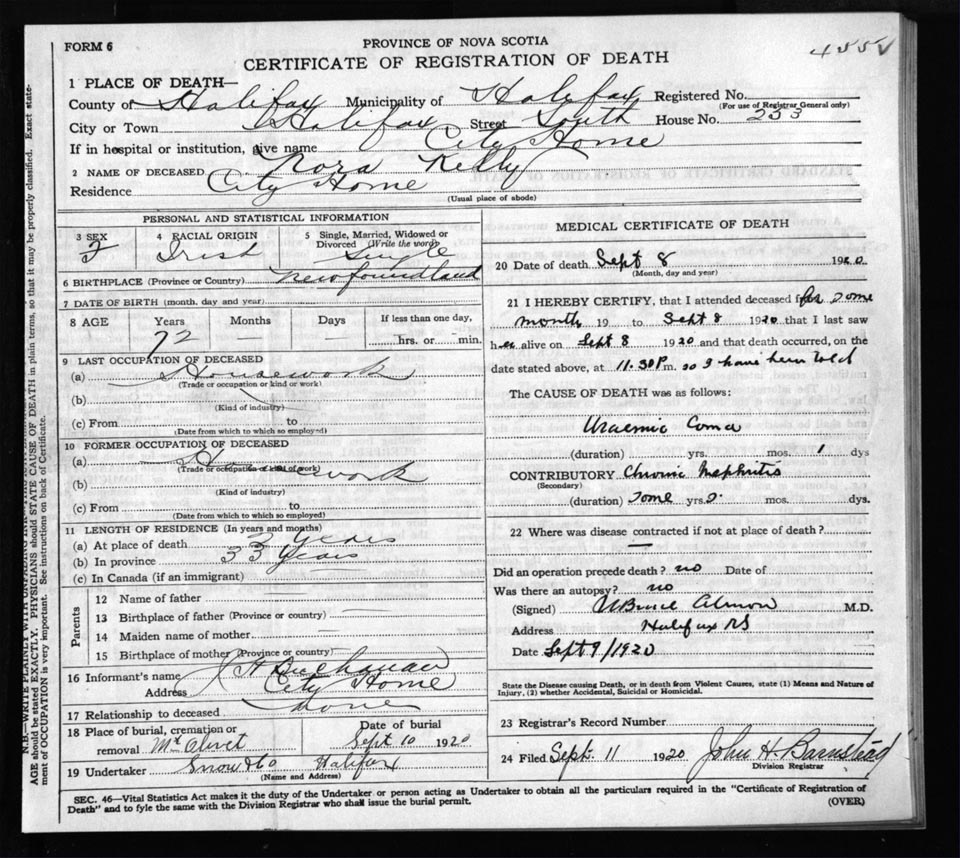 FORM 6
PROVINCE OF NOVA SCOTIA
CERTIFICATE OF REGISTRATION OF DEATH
1 PLACE OF DEATH—
County of Halifax Municipality of Halifax Registered No.
(For use of Registrar General only)
City or Town Halifax Street South House No. 233
If in hospital or institution, give name City Home
2 NAME OF DECEASED Nora Kelly
Residence City Home
(Usual place of abode)
PERSONAL AND STATISTICAL INFORMATION
3 SEX 4 RACIAL ORIGIN 5 Single, Married, Widowed or Divorced (Write the word)
F Irish Single
6 BIRTHPLACE (Province or Country) Newfoundland
7 DATE OF BIRTH (month, day and year)
8 AGE Years Months Days If less than one day,
72 — — hrs. or min.
9 LAST OCCUPATION OF DECEASED
(a) Housework
(Trade or occupation or kind or work)
(b)
(Kind of industry)
(c) From to
(Date from which to which so employed)
10 FORMER OCCUPATION OF DECEASED
(a) Housework
(Trade or occupation or kind of work)
(b)
(Kind of industry)
(c) From to
(Date from which to which so employed)
11 LENGTH OF RESIDENCE (In years and months)
(a) At place of death 3 years
(b) In province 33 years
(c) In Canada (if an immigrant)
Parents
12 Name of father —
13 Birthplace of father (Province or country) —
14 Maiden name of mother —
15 Birthplace of mother (Province or country)
16 Informant's name Buchanan
Address City Home
17 Relationship to deceased None
18 Place of burial, cremation or removal Mt Olivet
Date of burial Sept 10 1920
19 Undertaker Snow & Co Halifax
(Name and Address)
MEDICAL CERTIFICATE OF DEATH
20 Date of death Sept 8 1920
(Month, day and year)
21 I HEREBY CERTIFY, that I attended deceased for some
months 19 to Sept 8 1920 that I last saw
her alive on Sept 8 1920 and that death occurred, on the
date stated above, at 11.30 P m. so I have been told
The CAUSE OF DEATH was as follows:
Uraemic Coma
(duration) yrs. mos. 1 dys
CONTRIBUTORY Chronic Nephritis
(Secondary)
(duration) some yrs. mos. dys.
22 Where was disease contracted if not at place of death? —
Did an operation precede death? no Date of
Was there an autopsy? no
(Signed) Bruce Almon M.D.
Address Halifax NS
Date Sept 9/1920
State the Disease causing Death, or in death from Violent Causes, state (1) Means and Nature of
Injury, (2) whether Accidental, Suicidal or Homicidal.
23 Registrar's Record Number
24 Filed Sept. 11 1920 John H. Barnstead
Division Registrar
SEC. 46—Vital Statistics Act makes it the duty of the Undertaker or person acting as Undertaker to obtain all the particulars required in the "Certificate of Registration of
Death" and to fyle the same with the Division Registrar who shall issue the burial permit.
(OVER)
AGE should be stated EXACTLY. PHYSICIANS should STATE CAUSE OF DEATH in plain terms, so that it may be properly classified. Exact state-
ment of OCCUPATION is very important. See instructions on back of Certificate.